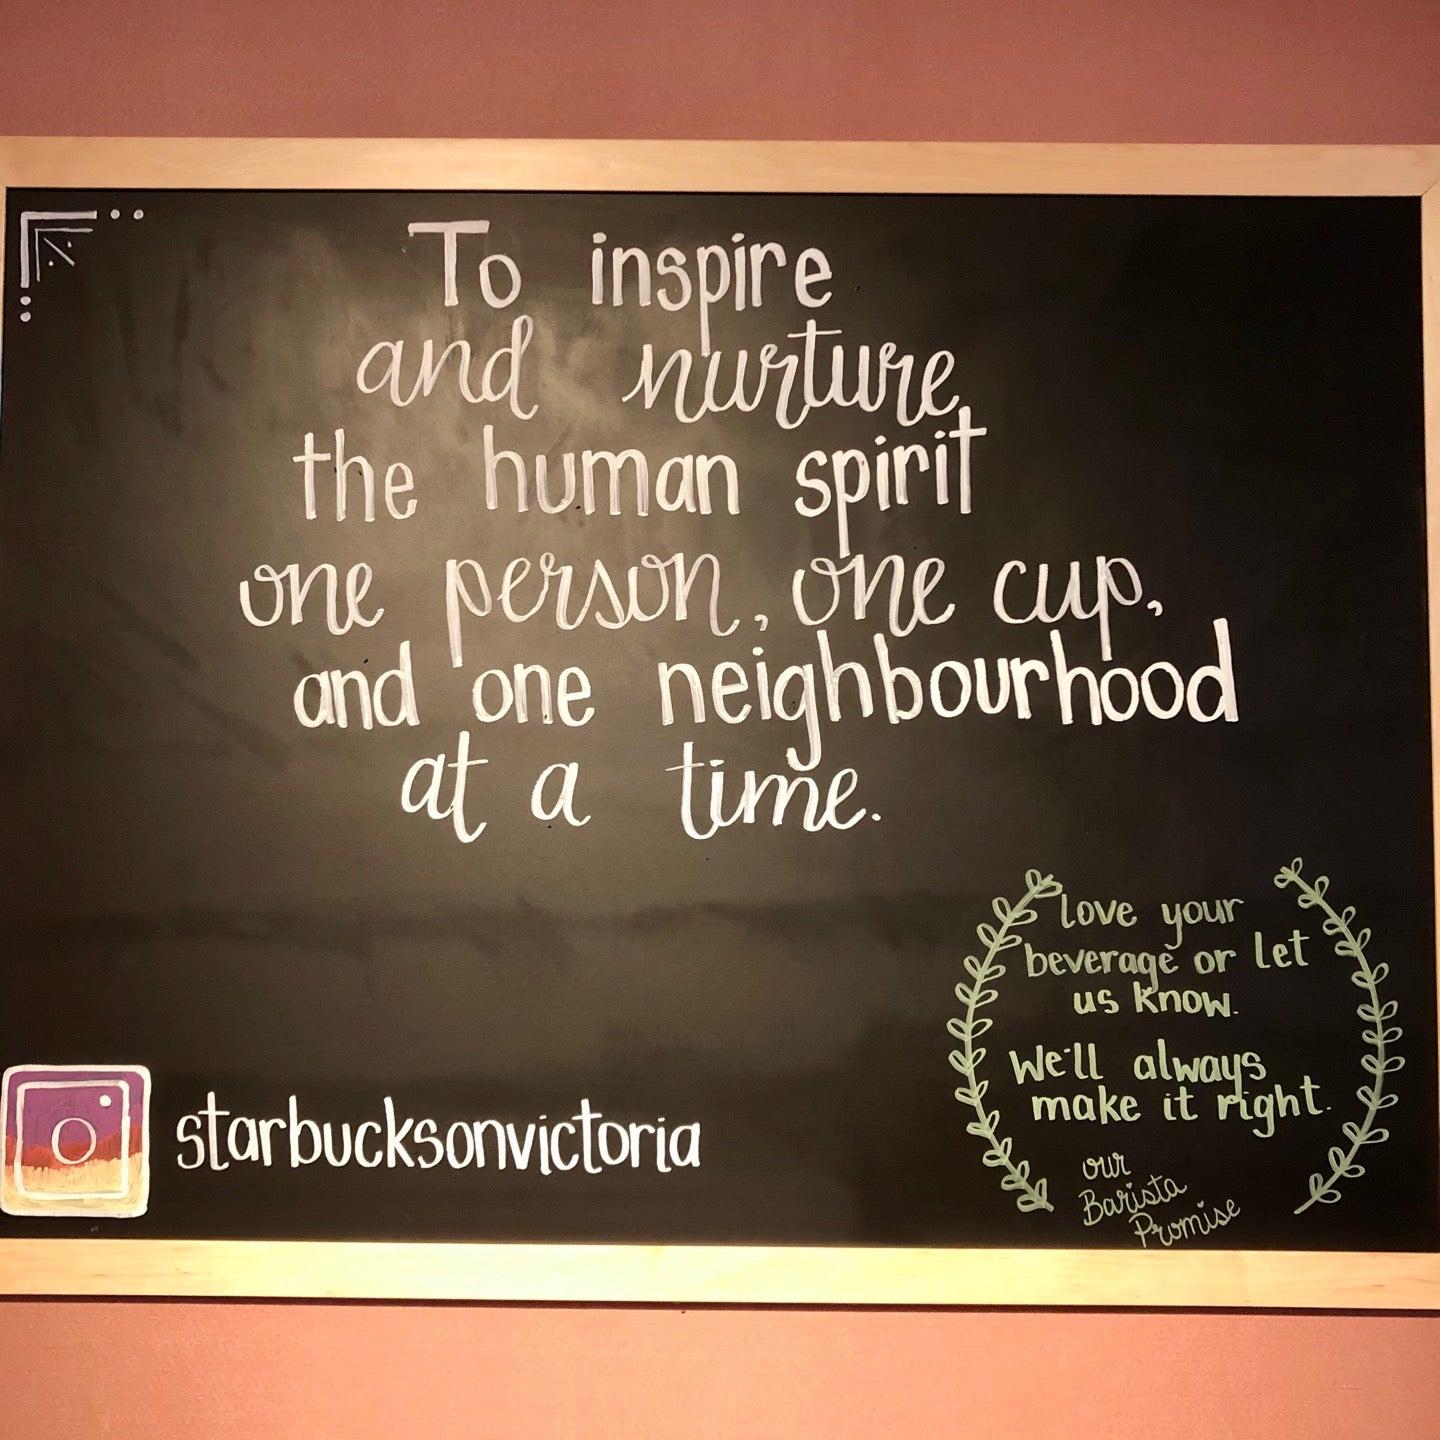 To inspire
and nurture
the human spirit
one person, one cup,
and one neighbourhood
at a time.
love your
beverage or let
us know.
We'll always
make it right.
our
Barista
Promise
starbucksonvictoria